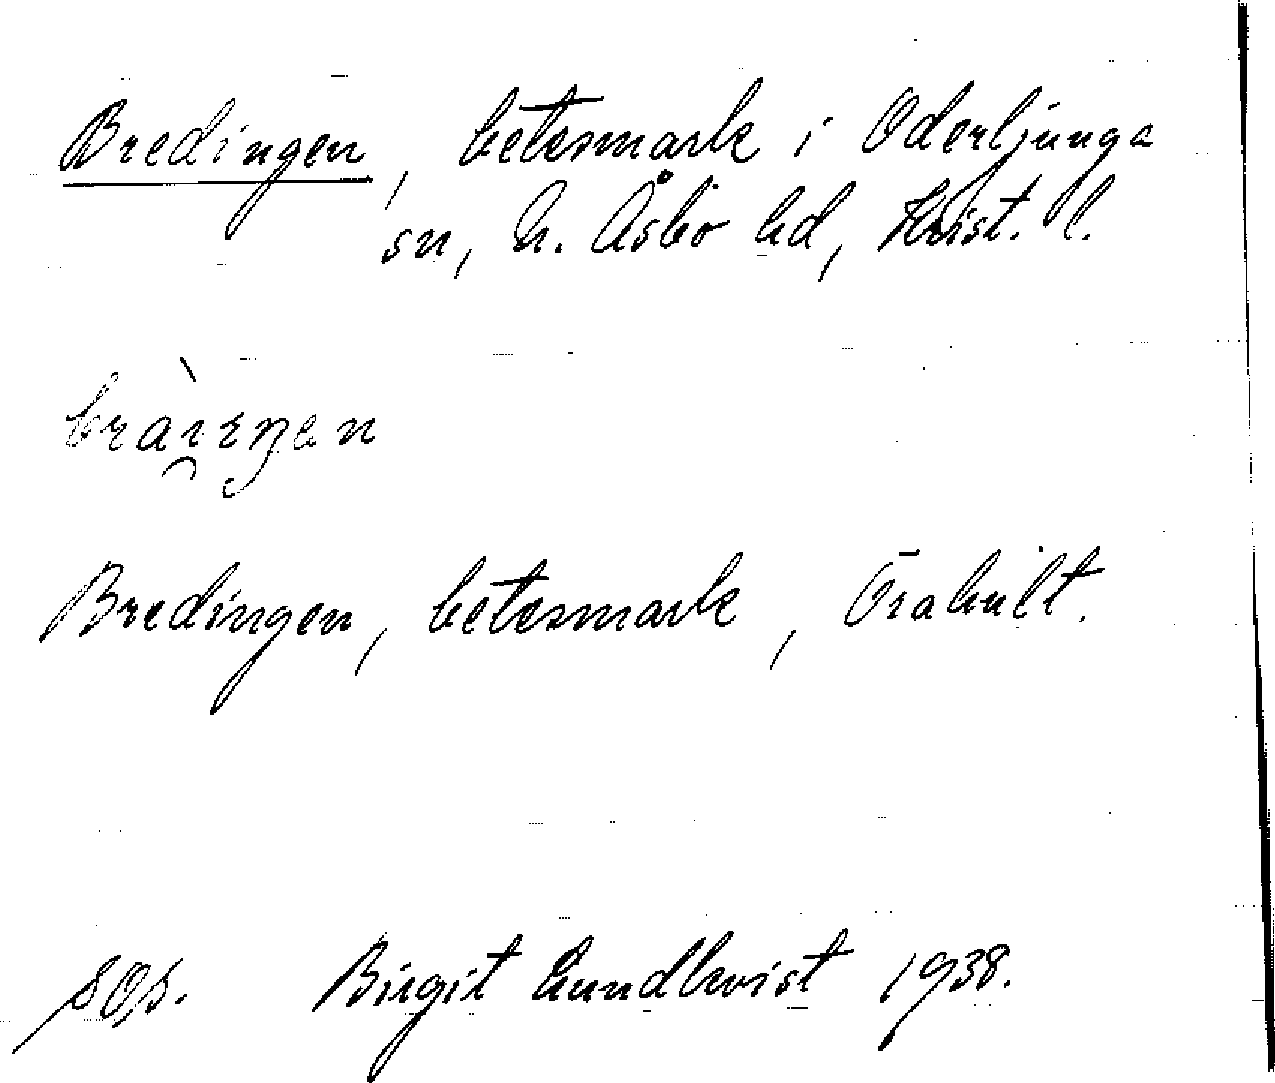 Bredingen, betesmark i Oderljunga
sn, N. Åsbo hd, Krist. l.
bràiɛŋən
Bredingen, betesmark, Örahult.
SOS. Birgit Lundkvist 1938.